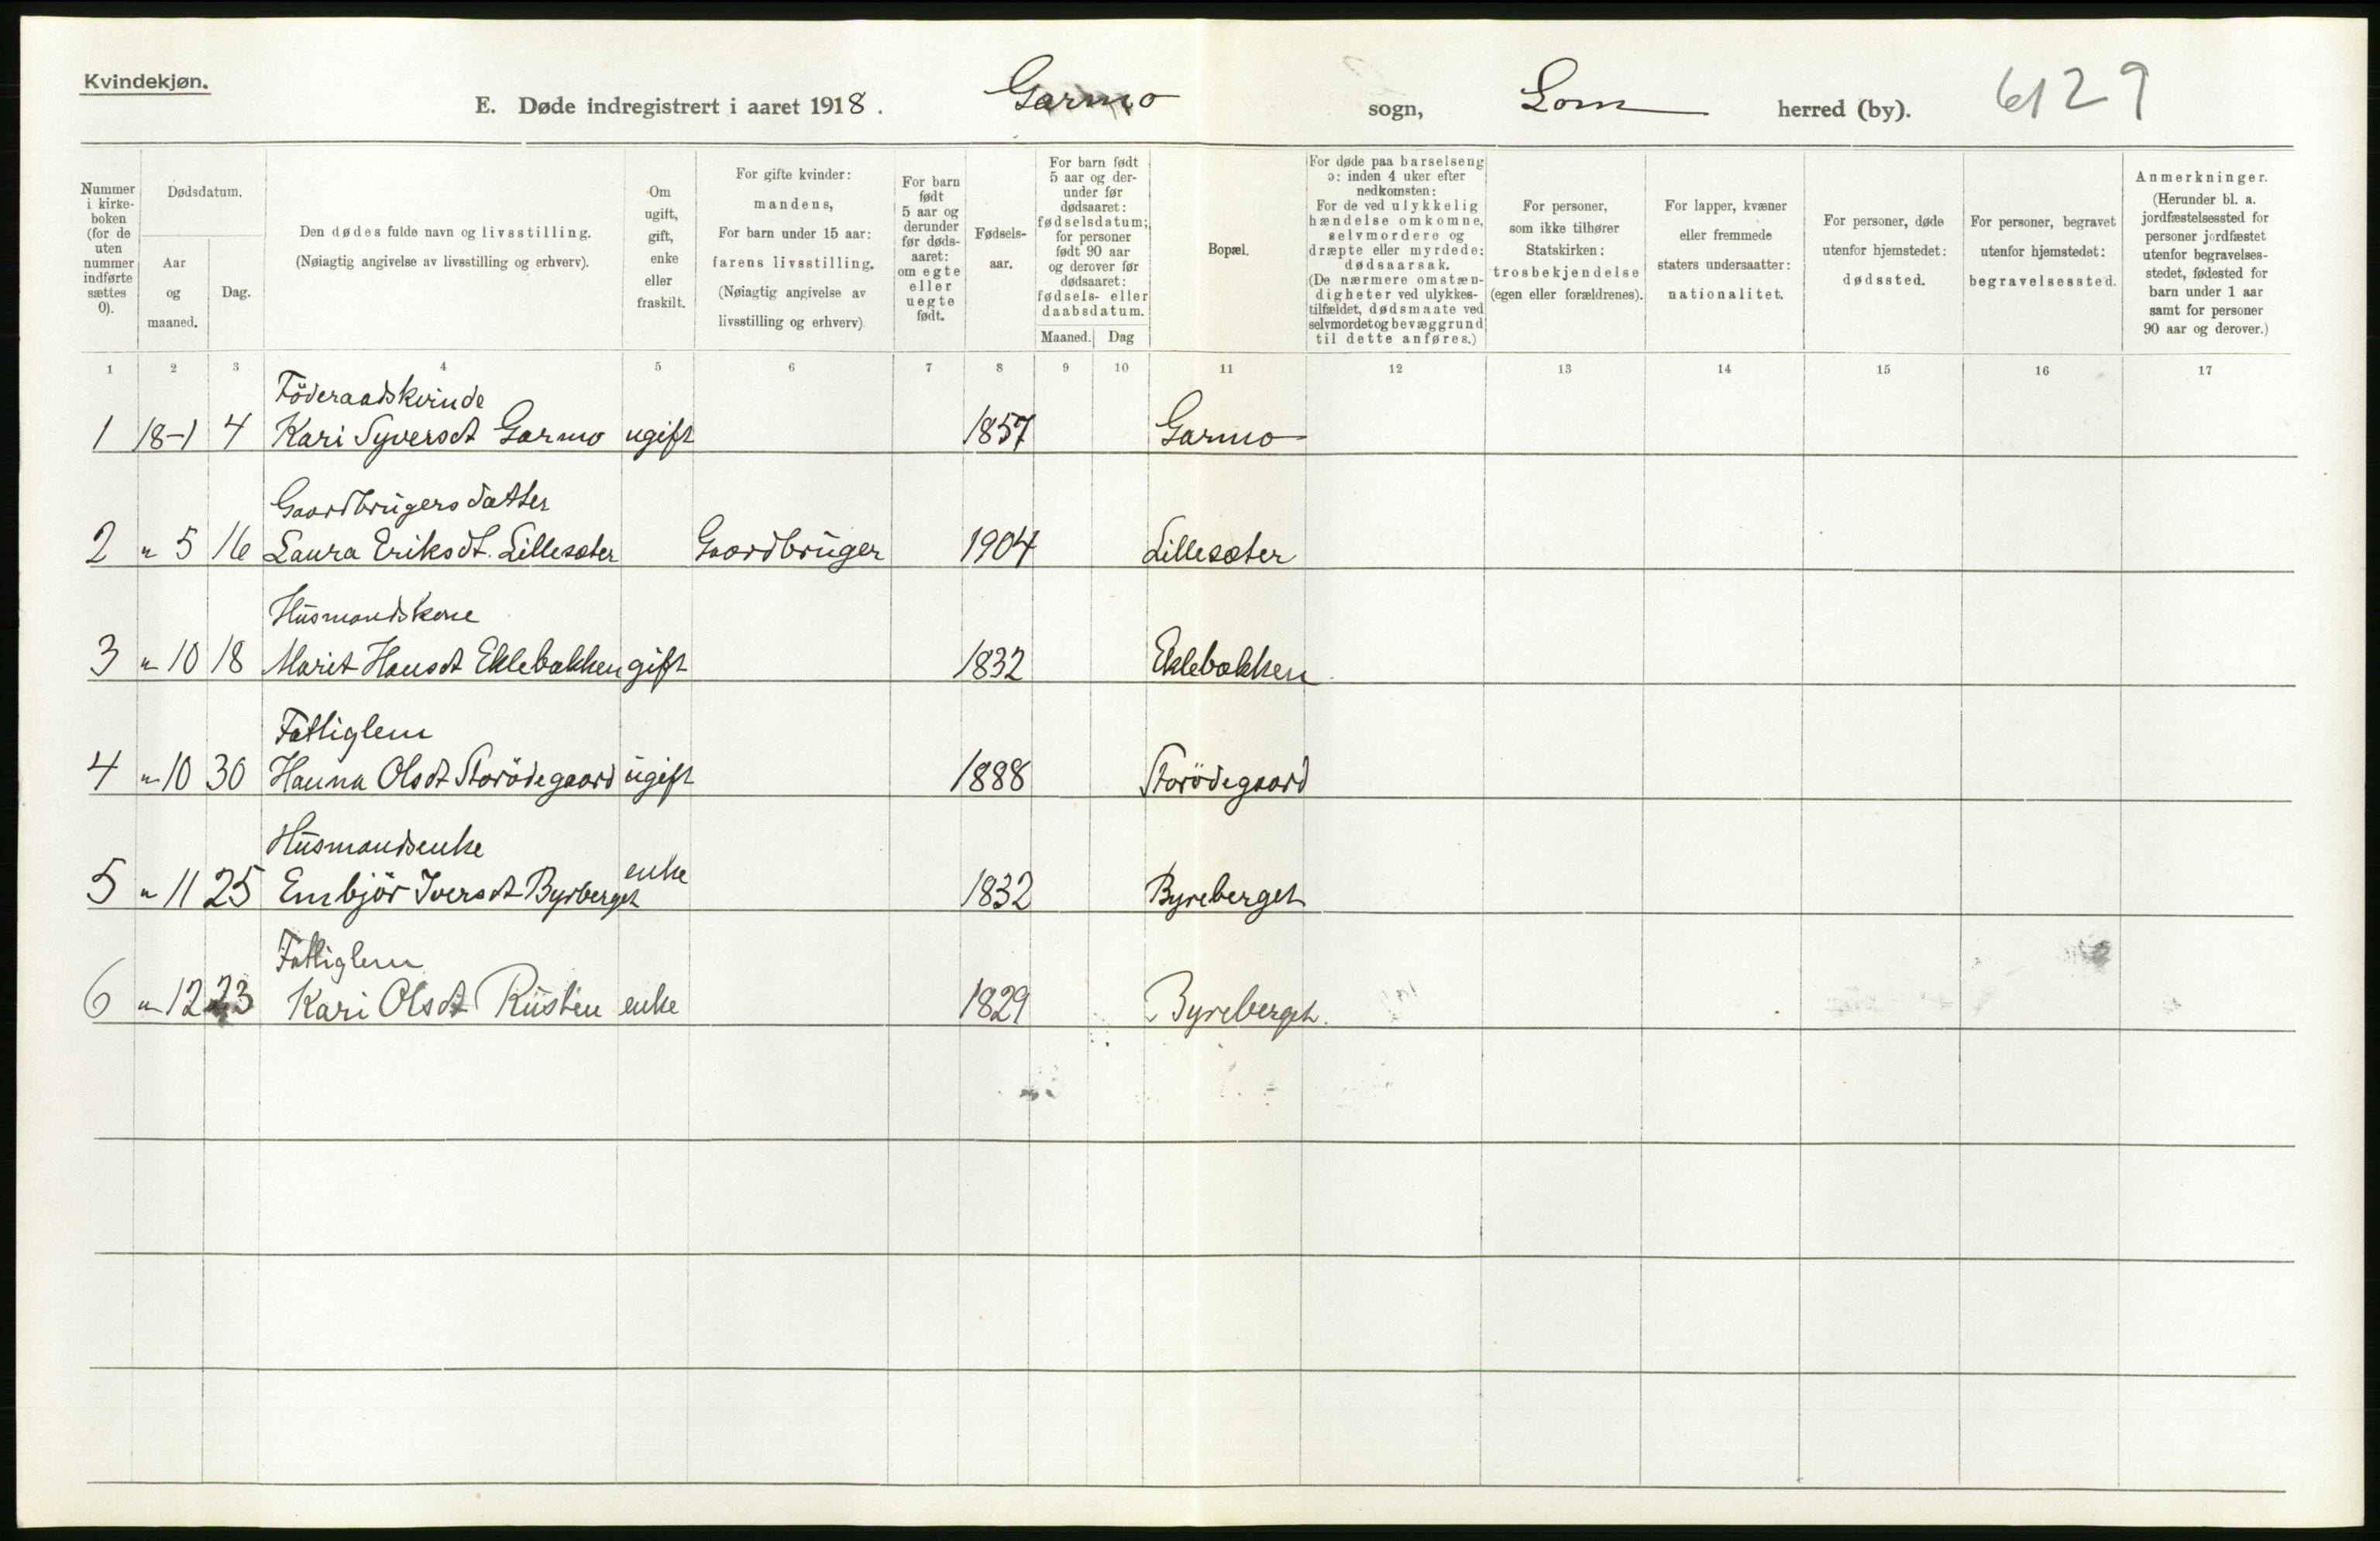 Kvindekjøn.
E. Døde indregistrert i aaret 1918. Garmo sogn, Lom herred (by). 6129
Nummer i kirke-boken (for de uten nummer indførte sættes 0).
Dødsdatum.
Aar og maaned.
Dag.
Den dødes fulde navn og livsstilling.
(Nøiagtig angivelse av livsstilling og erhverv).
Om ugift, gift, enke eller fraskilt.
For gifte kvinder: mandens,
For barn under 15 aar: farens livsstilling.
(Nøiagtig angivelse av livsstilling og erhverv)
For barn født 5 aar og derunder før døds-aaret: om egte eller uegte født.
Fødsels-aar.
For barn født 5 aar og der-under før dødsaaret: fødselsdatum; for personer født 90 aar og derover før dødsaaret: fødsels- eller daabsdatum.
Maaned. Dag
Bopæl.
For døde paa barselseng ɔ: inden 4 uker efter nedkomsten:
For de ved ulykkelig hændelse omkomne, selvmordere og dræpte eller myrdede: dødsaarsak.
(De nærmere omstæn-digheter ved ulykkes-tilfældet, dødsmaate ved selvmordet og bevæggrund til dette anføres.)
For personer, som ikke tilhører Statskirken: trosbekjendelse (egen eller forældrenes).
For lapper, kvæner eller fremmede staters undersaatter: nationalitet.
For personer, døde utenfor hjemstedet: dødssted.
For personer, begravet utenfor hjemstedet: begravelsessted.
Anmerkninger.
(Herunder bl. a. jordfæstelsessted for personer jordfæstet utenfor begravelses-stedet, fødested for barn under 1 aar samt for personer 90 aar og derover.)
1 2 3 4 5 6 7 8 9 10 11 12 13 14 15 16 17
Föderaadskvinde
1 18-1 4 Kari Syversdt Garmo ugift 1857 Garmo
Gaardbrugersdatter
2 " 5 16 Laura Eriksdt. Lillesæter Gaardbruger 1904 Lillesæter
Husmandskone
3 " 10 18 Marit Hansdt Eklebakken gift 1832 Eklebakken
Fattiglem
4 " 10 30 Hanna Olsdt Storödegaard ugift 1888 Storödegaard
Husmandsenke
5 " 11 25 Embjör Iversdt Byrberget enke 1832 Byreberget
Fattiglem
6 " 12 23 Kari Olsdt Rusten enke 1829 Byreberget.